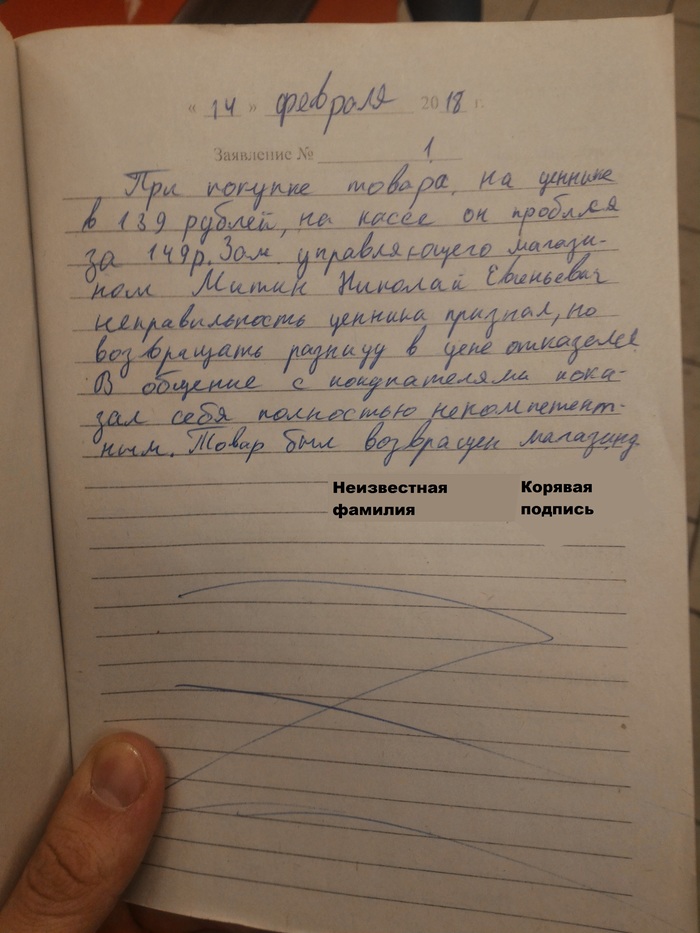 « 14 » февраля 2018 г.
Заявление № 1
При покупке товара, на ценнике
в 139 рублей, на кассе он пробился
за 149р. Зам. управляющего магази-
ном Митин Николай Евгеньевич
неправильность ценника признал, но
возвращать разницу в цене отказался.
В общение с покупателями пока-
зал себя полностью некомпетент-
ным. Товар был возвращен магазину.
Неизвестная Корявая
фамилия подпись